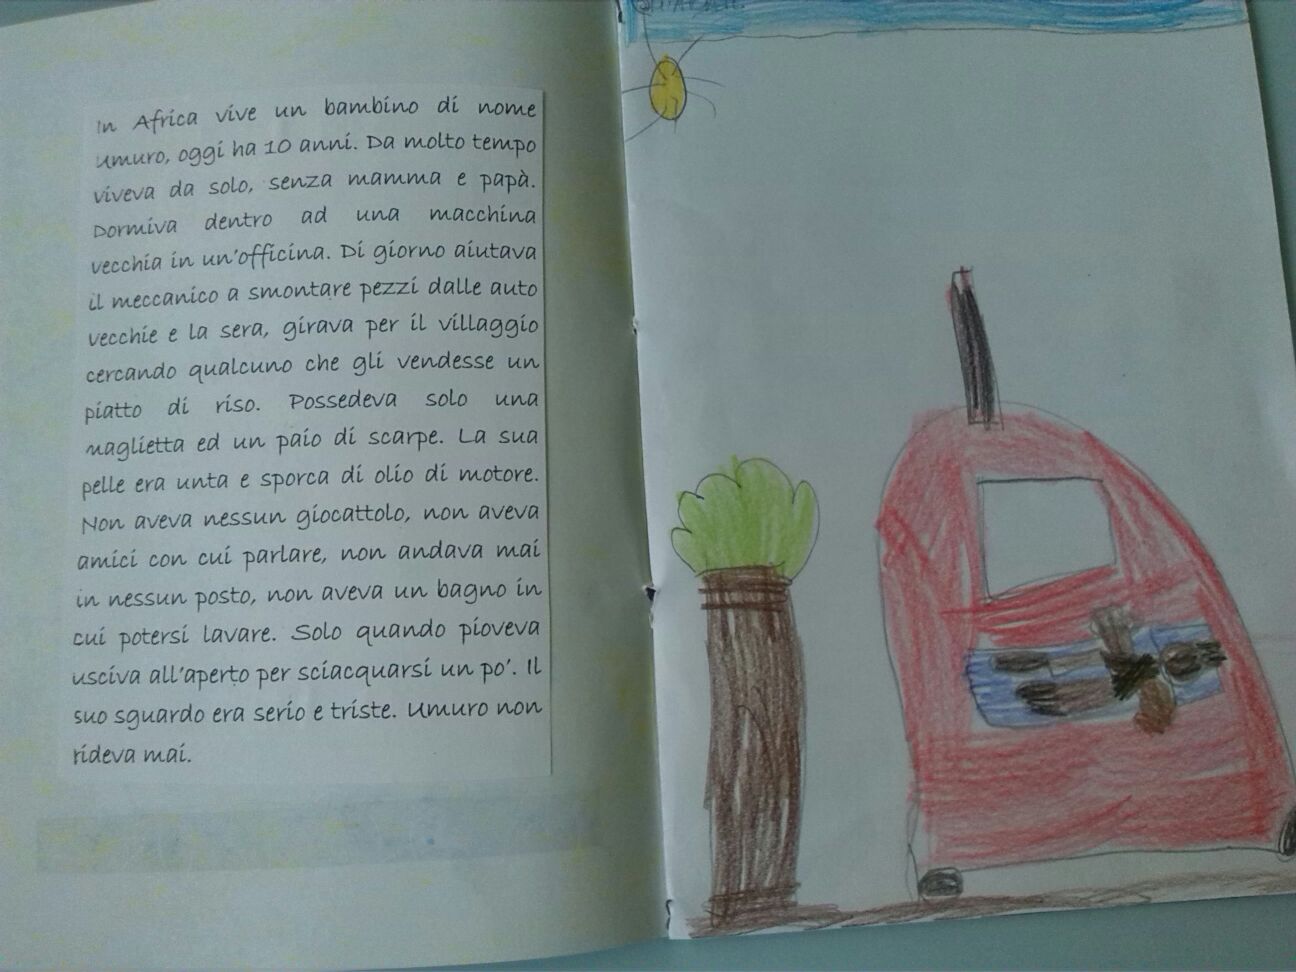 In Africa vive un bambino di nome
Umuro, oggi ha 10 anni. Da molto tempo
viveva da solo, senza mamma e papà.
Dormiva dentro ad una macchina
vecchia in un'officina. Di giorno aiutava
il meccanico a smontare pezzi dalle auto
vecchie e la sera, girava per il villaggio
cercando qualcuno che gli vendesse un
piatto di riso. Possedeva solo una
maglietta ed un paio di scarpe. La sua
pelle era unta e sporca di olio di motore.
Non aveva nessun giocattolo, non aveva
amici con cui parlare, non andava mai
in nessun posto, non aveva un bagno in
cui potersi lavare. Solo quando pioveva
usciva all'aperto per sciacquarsi un po'. Il
suo sguardo era serio e triste. Umuro non
rideva mai.